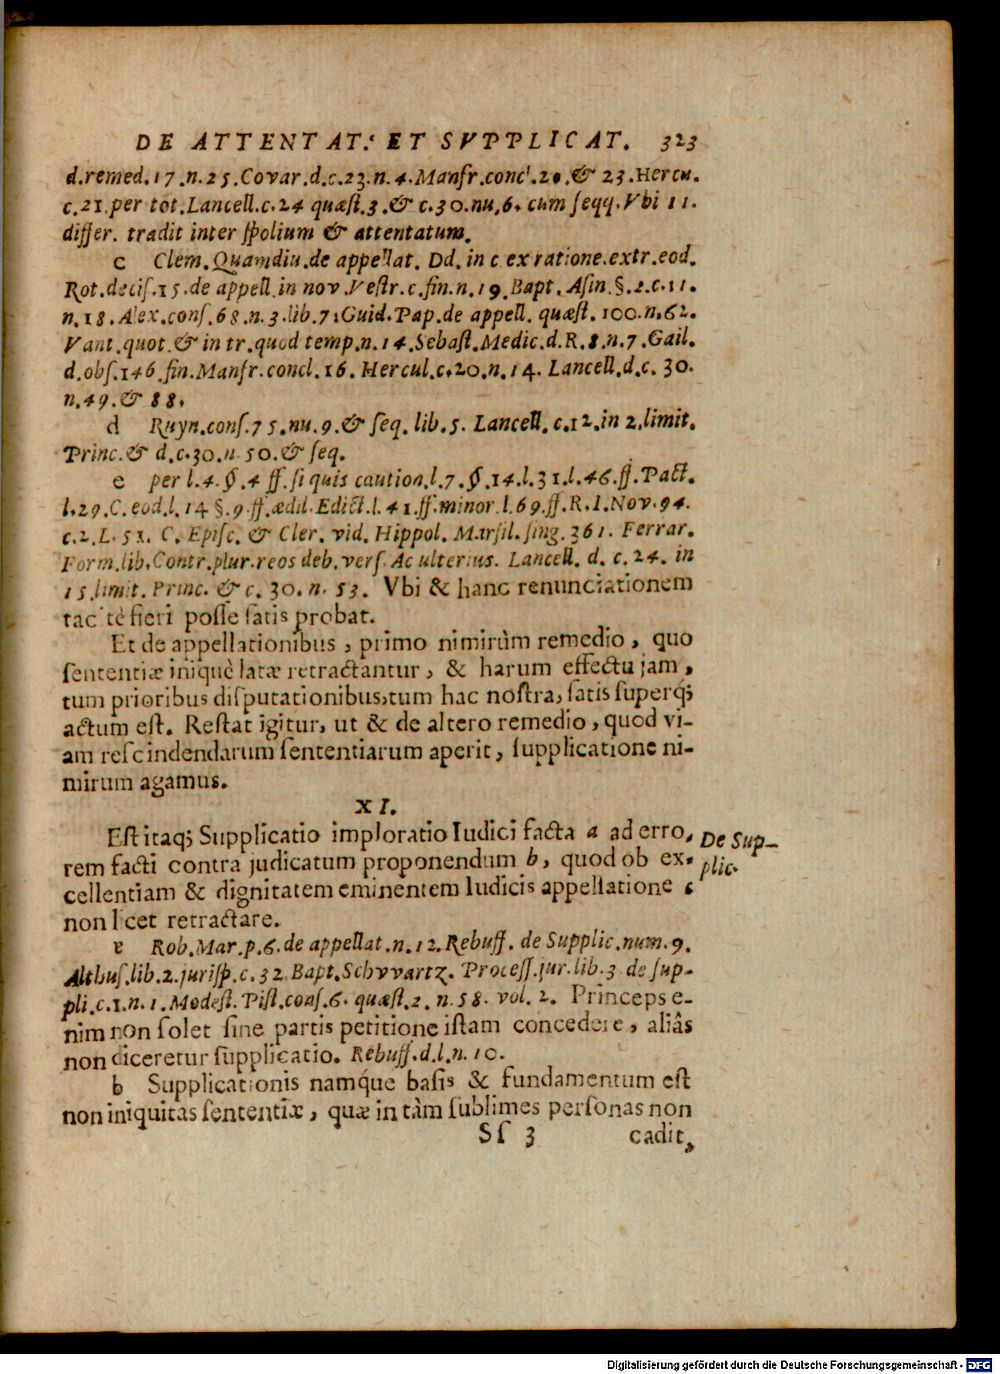 DE ATTENTAT. ET SVPPLICAT. 323
d.remed.17.n.25.Covar.d.c.23.n.4.Manfr.concl.20.& 23.Hercu.
c.21.per tot.Lancell.c.24 quæſt.3.& c.30.nu,6. cum ſeqq.Vbi 11.
differ. tradit inter ſpolium & attentatum.
c Clem.Quamdiu.de appellat. Dd. in c ex ratione.extr.eod.
Rot.deciſ.15.de appell.in nov.Veſtr.c.fin.n.19.Bapt. Aſin.§.2.c.11.
n.18.Alex.conſ.68.n.3.lib.7.Guid.Pap.de appell. quæſt.100.n.62.
Vant.quot.& in tr.quod temp.n.14.Sebaſt.Medic.d.R.8.n.7.Gail.
d.obſ.146.fin.Manfr.concl.16. Hercul.c.20.n.14. Lancell.d.c. 30.
n.49.& 88.
d Ruyn.conſ.75.nu.9.& ſeq. lib.5. Lancell.c.12.in 2.limit.
Princ.& d.c.30.n 50.& ſeq.
e per l.4.§.4 ff.ſi quis caution.l.7.§.14.l.31.l.46.ff.Pact.
l.29.C.eod.l.14 §.9.ff.ædil.Edict.l.41.ff.minor.l.69.ff.R.I.Nov.94.
c.2.L.51. C. Epiſc. & Cler. vid. Hippol. Marſil.ſing.361. Ferrar.
Form.lib.Contr.plur.reos deb.verſ.Ac ulterius. Lancell. d. c. 24. in
15.limit. Princ. & c. 30. n. 53. Vbi & hanc renunciationem
tacitè fieri poſſe ſatis probat.
Et de appellationibus, primo nimirùm remedio, quo
ſententiæ iniquè latæ retractantur, & harum effectu jam,
tum prioribus diſputationibus,tum hac noſtra, ſatis ſuperq;
actum eſt. Reſtat igitur, ut & de altero remedio, quod vi-
am reſcindendarum ſententiarum aperit, ſupplicatione ni-
mirum agamus.
XI.
Eſt itaq; Supplicatio imploratio Iudici facta a ad erro-
De Sup-
rem facti contra judicatum proponendum b, quod ob ex-
plic.
cellentiam & dignitatem eminentem Iudicis appellatione c
non licet retractare.
a Rob.Mar.p.6.de appellat.n.12.Rebuff. de Supplic.num.9.
Althuſ.lib.2.juriſp.c.32.Bapt.Schvvartz. Proceſſ.jur.lib.3 de ſup-
pli.c.1.n.1.Modeſt.Piſt.conſ.6. quæſt.2. n.58. vol. 2. Princeps e-
nim non ſolet ſine partis petitione iſtam concedere, aliâs
non diceretur ſupplicatio. Rebuff.d.l.n.10.
b Supplicationis namque baſis & fundamentum eſt
non iniquitas ſententiæ, quæ in tàm ſublimes perſonas non
Sſ 3 cadit,
Digitalisierung gefördert durch die Deutsche Forschungsgemeinschaft - DFG